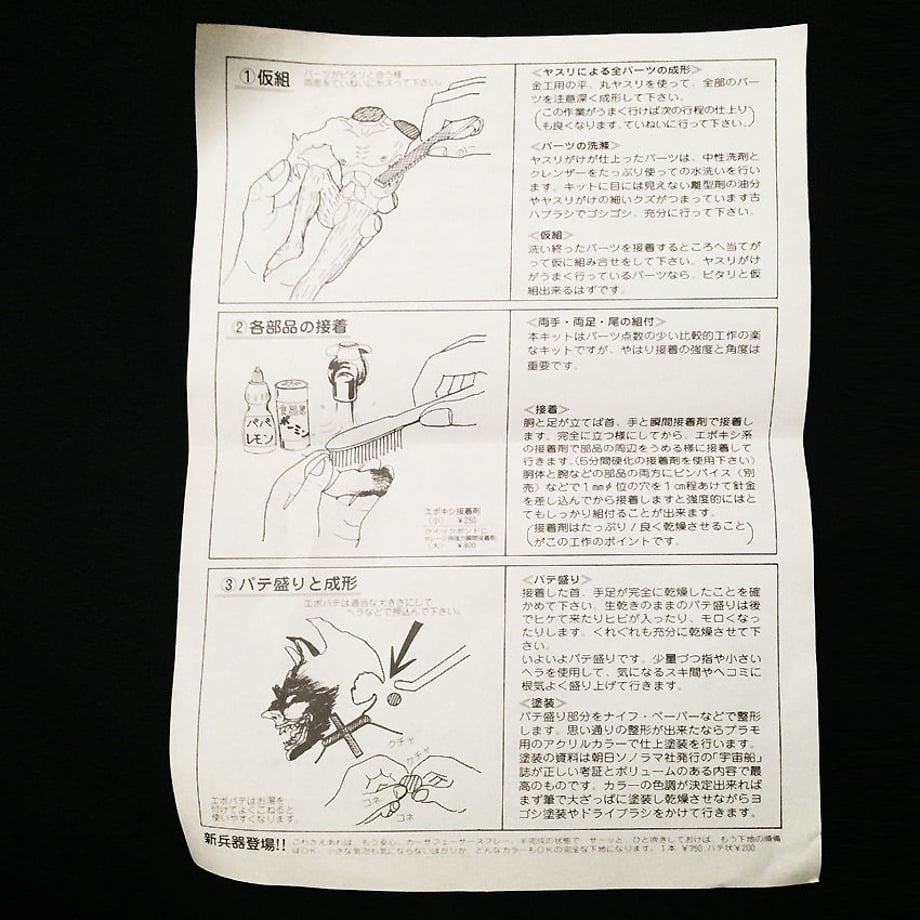 ①仮組
パーツがピタリと合う様
両面をていねいにヤスって下さい。
≪ヤスリによる全パーツの成形≫
金工用の平、丸ヤスリを使って、全部のパー
ツを注意深く成形して下さい。
(この作業がうまく行けば次の行程の仕上り
も良くなります。ていねいに行って下さい。)
≪パーツの洗滌≫
ヤスリがけが仕上ったパーツは、中性洗剤と
クレンザーをたっぷり使っての水洗いを行い
ます。キットに目には見えない離型剤の油分
やヤスリがけの細いクズがつまっています古
ハブラシでゴシゴシ、充分に行って下さい。
≪仮組≫
洗い終ったパーツを接着するところへ当てが
って仮に組み合せをして下さい。ヤスリがけ
がうまく行っているパーツなら、ピタリと仮
組出来るはずです。
②各部品の接着
パパ
レモン
ボーミン
エポキシ接着剤
(小) ¥250
クイックボンドC
(大) ¥800
≪両手・両足・尾の組付≫
本キットはパーツ点数の少い比較的工作の楽
なキットですが、やはり接着の強度と角度は
重要です。
≪接着≫
胴と足が立てば首、手と瞬間接着剤で接着し
ます。完全に立つ様にしてから、エポキシ系
の接着剤で部品の周辺をうめる様に接着して
行きます。(5分間硬化の接着剤を使用下さい)
胴体と腕などの部品の両方にピンバイス(別
売)などで1mm∮位の穴を1cm程あけて針金
を差し込んでから接着しますと強度的にはと
てもしっかり組付ることが出来ます。
(接着剤はたっぷり！良く乾燥させること
がこの工作のポイントです。)
③パテ盛りと成形
エポパテは適当な大きさにして
ヘラなどで押込んで下さい。
クチャ
クチャ
コネ
コネ
エポパテはお湯を
付けてよくこねると
使いやすくなります。
≪パテ盛り≫
接着した首、手足が完全に乾燥したことを確
かめて下さい。生乾きのままのパテ盛りは後
でヒケて来たりヒビが入ったり、モロくなっ
たりします。くれぐれも充分に乾燥させて下
さい。
いよいよパテ盛りです。少量づつ指や小さい
ヘラを使用して、気になるスキ間やヘコミに
根気よく盛り上げて行きます。
≪塗装≫
パテ盛り部分をナイフ・ペーパーなどで整形
します。思い通りの整形が出来たならプラモ
用のアクリルカラーで仕上塗装を行います。
塗装の資料は朝日ソノラマ社発行の「宇宙船」
誌が正しい考証とボリュームのある内容で最
高のものです。カラーの色調が決定出来れば
まず筆で大ざっぱに塗装し乾燥させながらヨ
ゴシ塗装やドライブラシをかけて行きます。
新兵器登場!! これさえあれば、もう安心、カーサフェーサースプレー、半完成の状態で、サーッと、ひと吹きしておけば、もう下地の準備
はOK、小さな気泡も気にならないばかりか、どんなカラーもOKの完全な下地になります。1本 ¥750 パテ状¥200